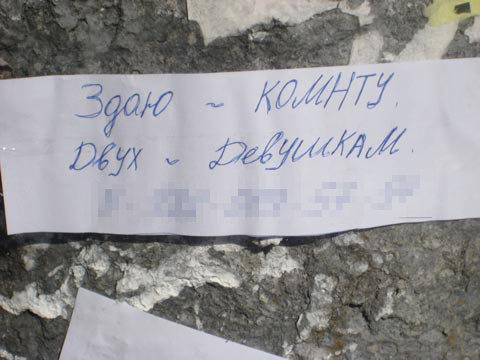 Здаю ~ КОМНТУ.
Двух ~ ДевушкАМ.